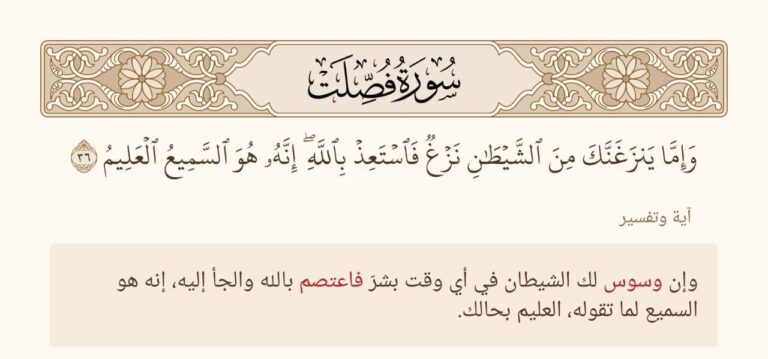 سُورَةُ فُصِّلَتْ
وَإِمَّا يَنزَغَنَّكَ مِنَ ٱلشَّيْطَٰنِ نَزْغٌ فَٱسْتَعِذْ بِٱللَّهِ ۖ إِنَّهُۥ هُوَ ٱلسَّمِيعُ ٱلْعَلِيمُ ٣٦
آية وتفسير
وإن وسوس لك الشيطان في أي وقت بشرّ فاعتصم بالله والجأ إليه، إنه هو
السميع لما تقوله، العليم بحالك.